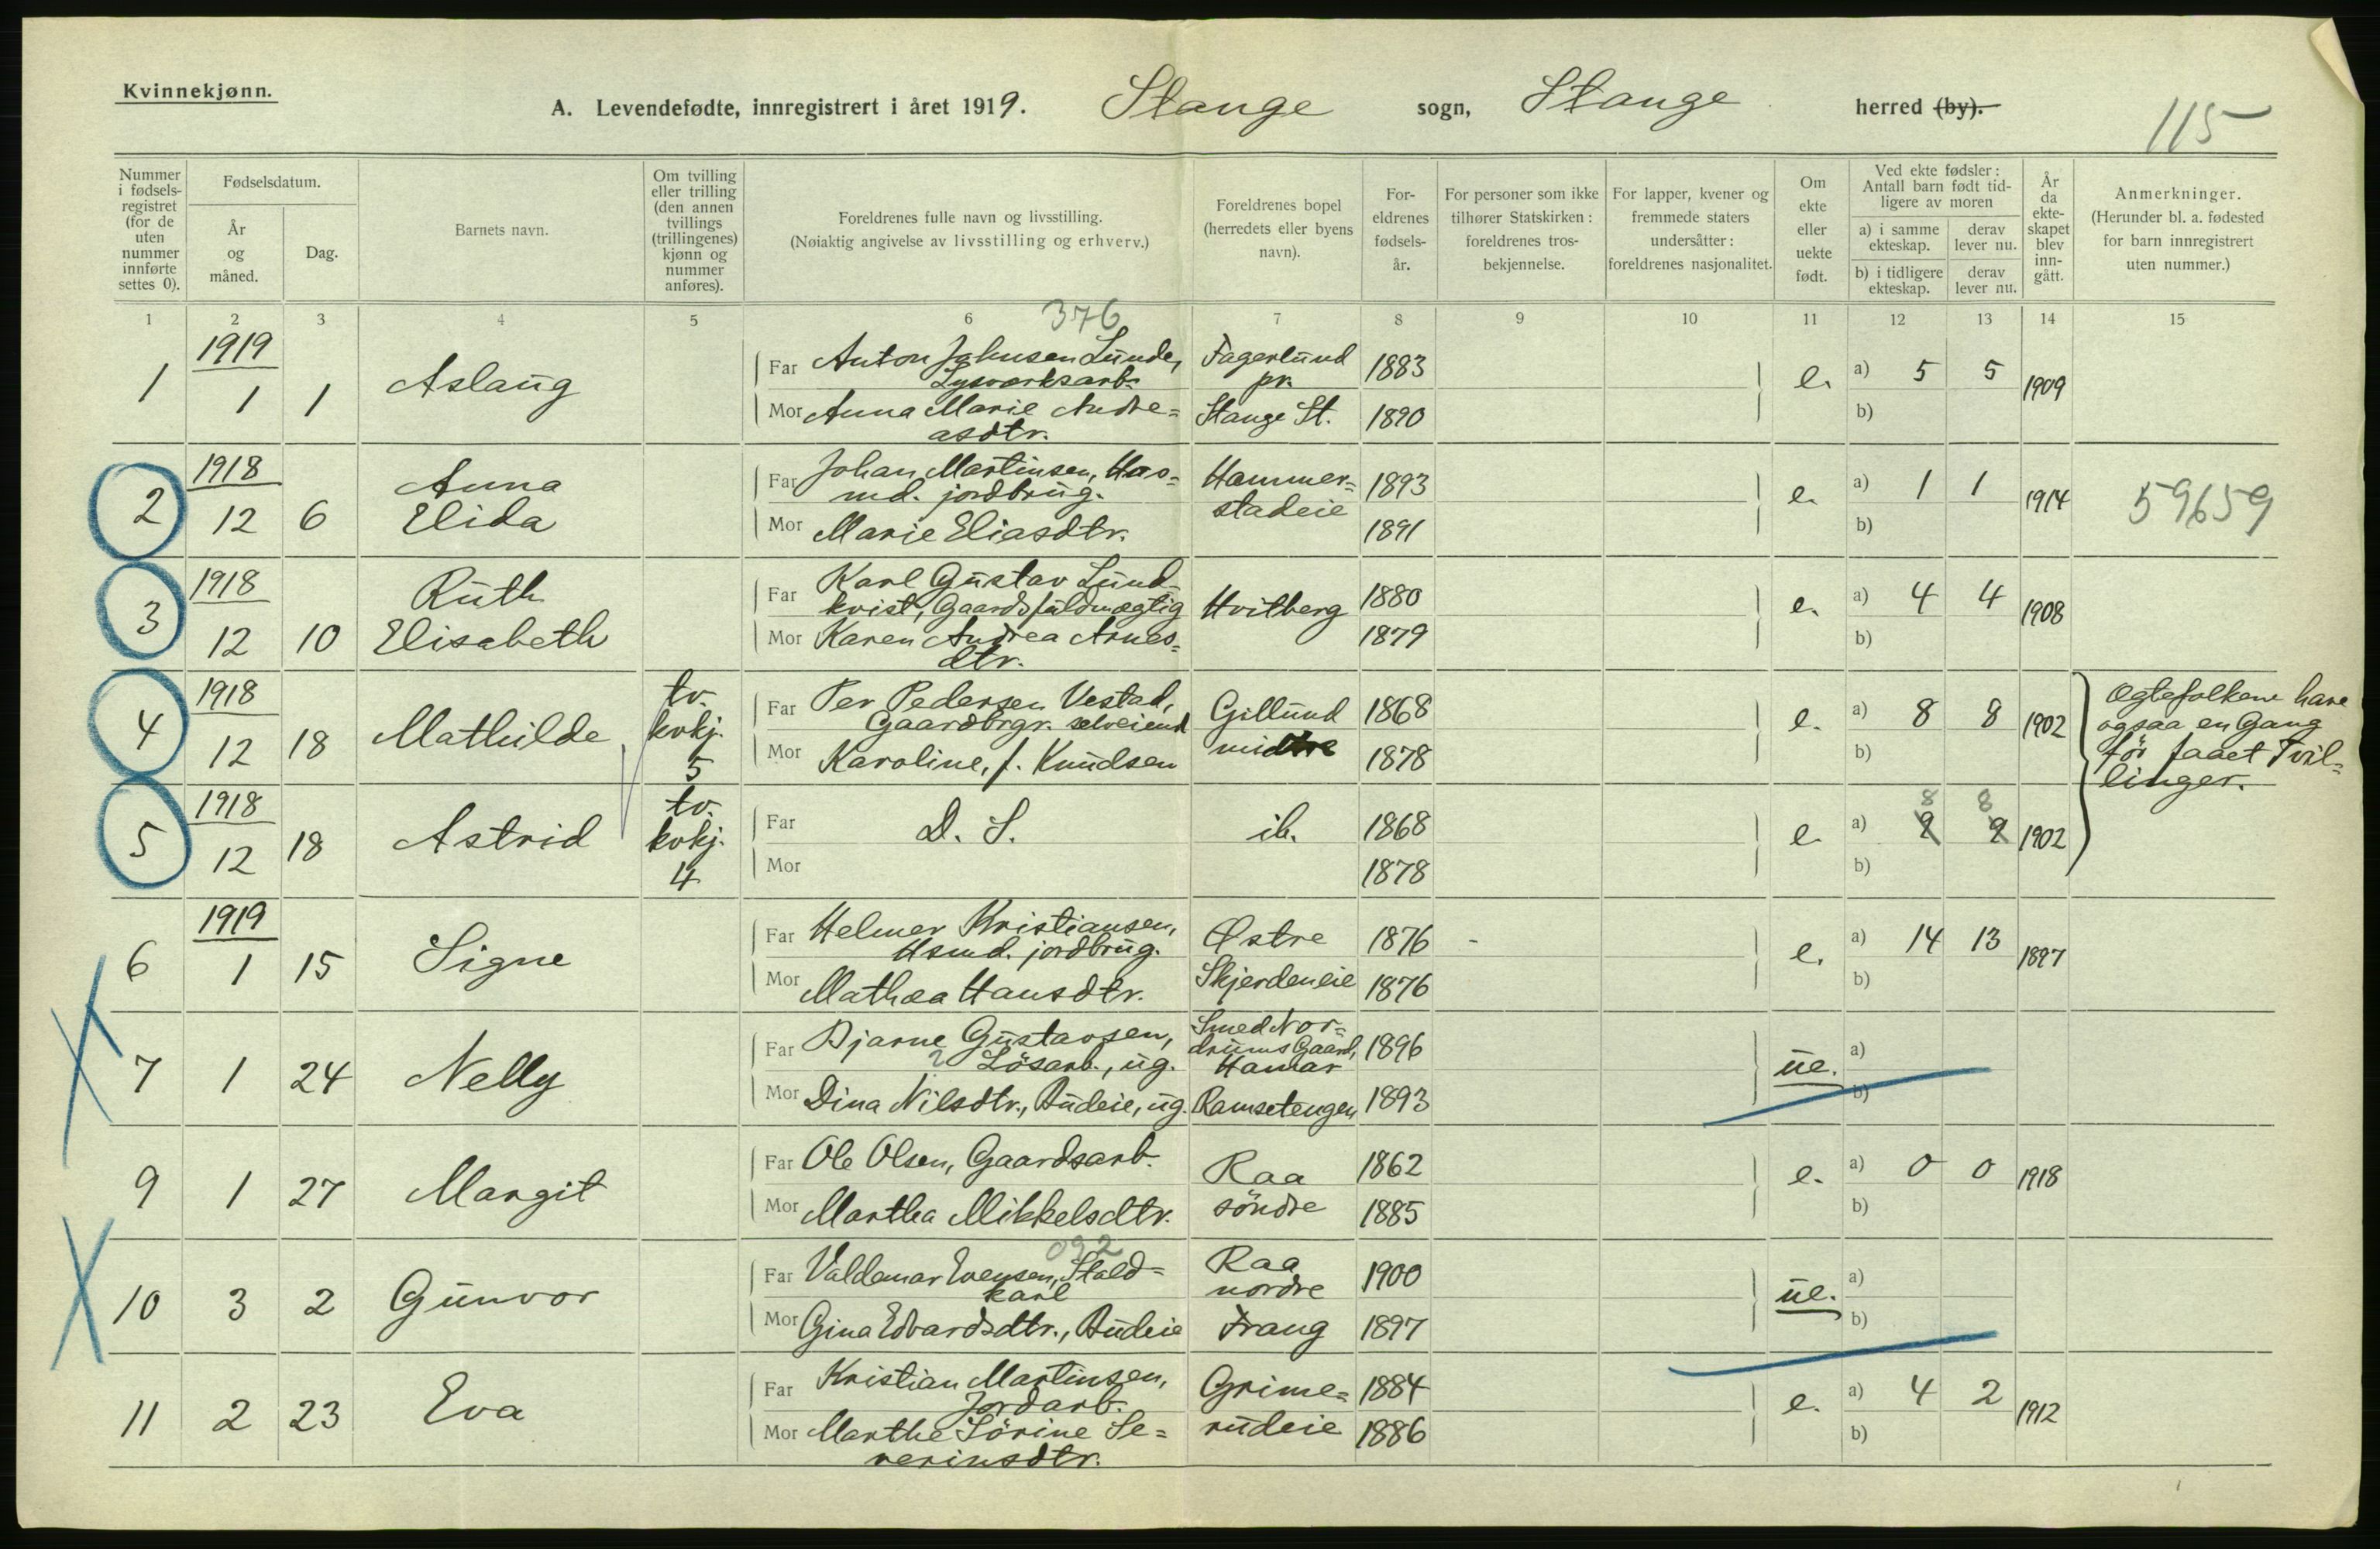 Kvinnekjønn.
A. Levendefødte, innregistrert i året 1919. Stange sogn, Stange herred (by).
115
Nummer i fødselsregistret (for de uten nummer innførte settes 0).
Fødselsdatum.
År og måned.
Dag.
Barnets navn.
Om tvilling eller trilling (den annen tvillings (trillingenes) kjønn og nummer anføres).
Foreldrenes fulle navn og livsstilling.
(Nøiaktig angivelse av livsstilling og erhverv.)
Foreldrenes bopel (herredets eller byens navn).
Foreldrenes fødselsår.
For personer som ikke tilhører Statskirken: foreldrenes trosbekjennelse.
For lapper, kvener og fremmede staters undersåtter: foreldrenes nasjonalitet.
Om ekte eller uekte født.
Ved ekte fødsler: Antall barn født tidligere av moren
a) i samme ekteskap. derav lever nu.
b) i tidligere ekteskap. derav lever nu.
År da ekteskapet blev inngått.
Anmerkninger.
(Herunder bl. a. fødested for barn innregistrert uten nummer.)
1 2 3 4 5 6 7 8 9 10 11 12 13 14 15
376
1919
1 1 1 Aslaug
Far Anton Johnsen Lunde, Fagerlund 1883 e. a) 5 5 1909
Lysverksarb. pr.
Mor Anna Marie Andre= Stange St. 1890 b)
asdtr.
1918
2 12 6 Anna
Elida
Far Johan Martinsen, Hus= Hammer= 1893 e. a) 1 1 1914 59659
md. jordbrug. stadeie
Mor Marie Eliasdtr. 1891 b)
1918
3 12 10 Ruth
Elisabeth
Far Karl Gustav Lund= 1880 e. a) 4 4 1908
kvist, Gaardsfuldmægtig Hvitberg
Mor Karen Andrea Arnes= 1879 b)
dtr.
1918
4 12 18 Mathilde tv.
kvkj.
5
Far Per Pedersen Vestad, Gillund 1868 e. a) 8 8 1902
Gaardbrgr. selveiend midtre
Mor Karoline, f. Knudsen 1878 b)
Ægtefolkene have
ogsaa en Gang
før faaet Tvil=
linger.
1918
5 12 18 Astrid tv.
kvkj.
4
8 8
Far D. S. ib. 1868 e. a) 9 9 1902
Mor 1878 b)
1919
6 1 15 Signe
Far Helmer Kristiansen, Østre 1876 - e. a) 14 13 1897
Hsmd. jordbrug.
Mor Mathea Hansdtr. Skjerdeneie 1876 b)
7 1 24 Nelly
Far Bjarne Gustavsen, Smed Nor= 1896 ue. a)
Løsarb., ug. drums Gaard,
Hamar
Mor Dina Nilsdtr., Budeie, ug. Ramsetengen 1893 b)
9 1 27 Margit
Far Ole Olsen, Gaardsarb. Raa 1862 e. a) 0 0 1918
Mor Martha Mikkelsdtr. søndre 1885 b)
092
10 3 2 Gunvor
Far Valdemar Evensen, Stald= Raa 1900 ue. a)
karl nordre
Mor Gina Edvardsdtr., Budeie Frang 1897 b)
11 2 23 Eva
Far Kristian Martinsen, Grime= 1884 e. a) 4 2 1912
Jordarb.
Mor Marthe Sørine Se= rudeie 1886 b)
verinsdtr.